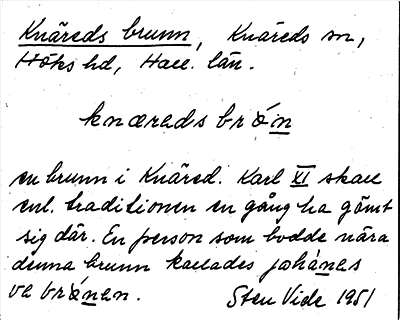 Knäreds brunn, Knäreds sn,
Höks hd, Hall. län.
knæreds brón
en brunn i Knäred. Karl XI skall
enl. traditionen en gång ha gömt
sig där. En person som bodde nära
denna brunn kallades johánes
ve brónen. Sten Vide 1951